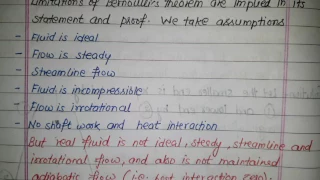 Limitations of Bernoulli's theorem are implied in its
statement and proof. We take assumptions
- Fluid is ideal
- Flow is steady
- Streamline flow
- Fluid is incompressible
- Flow is irrotational
- No shaft work and heat interaction
But real fluid is not ideal, steady, streamline and
irrotational flow, and also is not maintained
adiabatic flow (i.e. heat interaction zero).